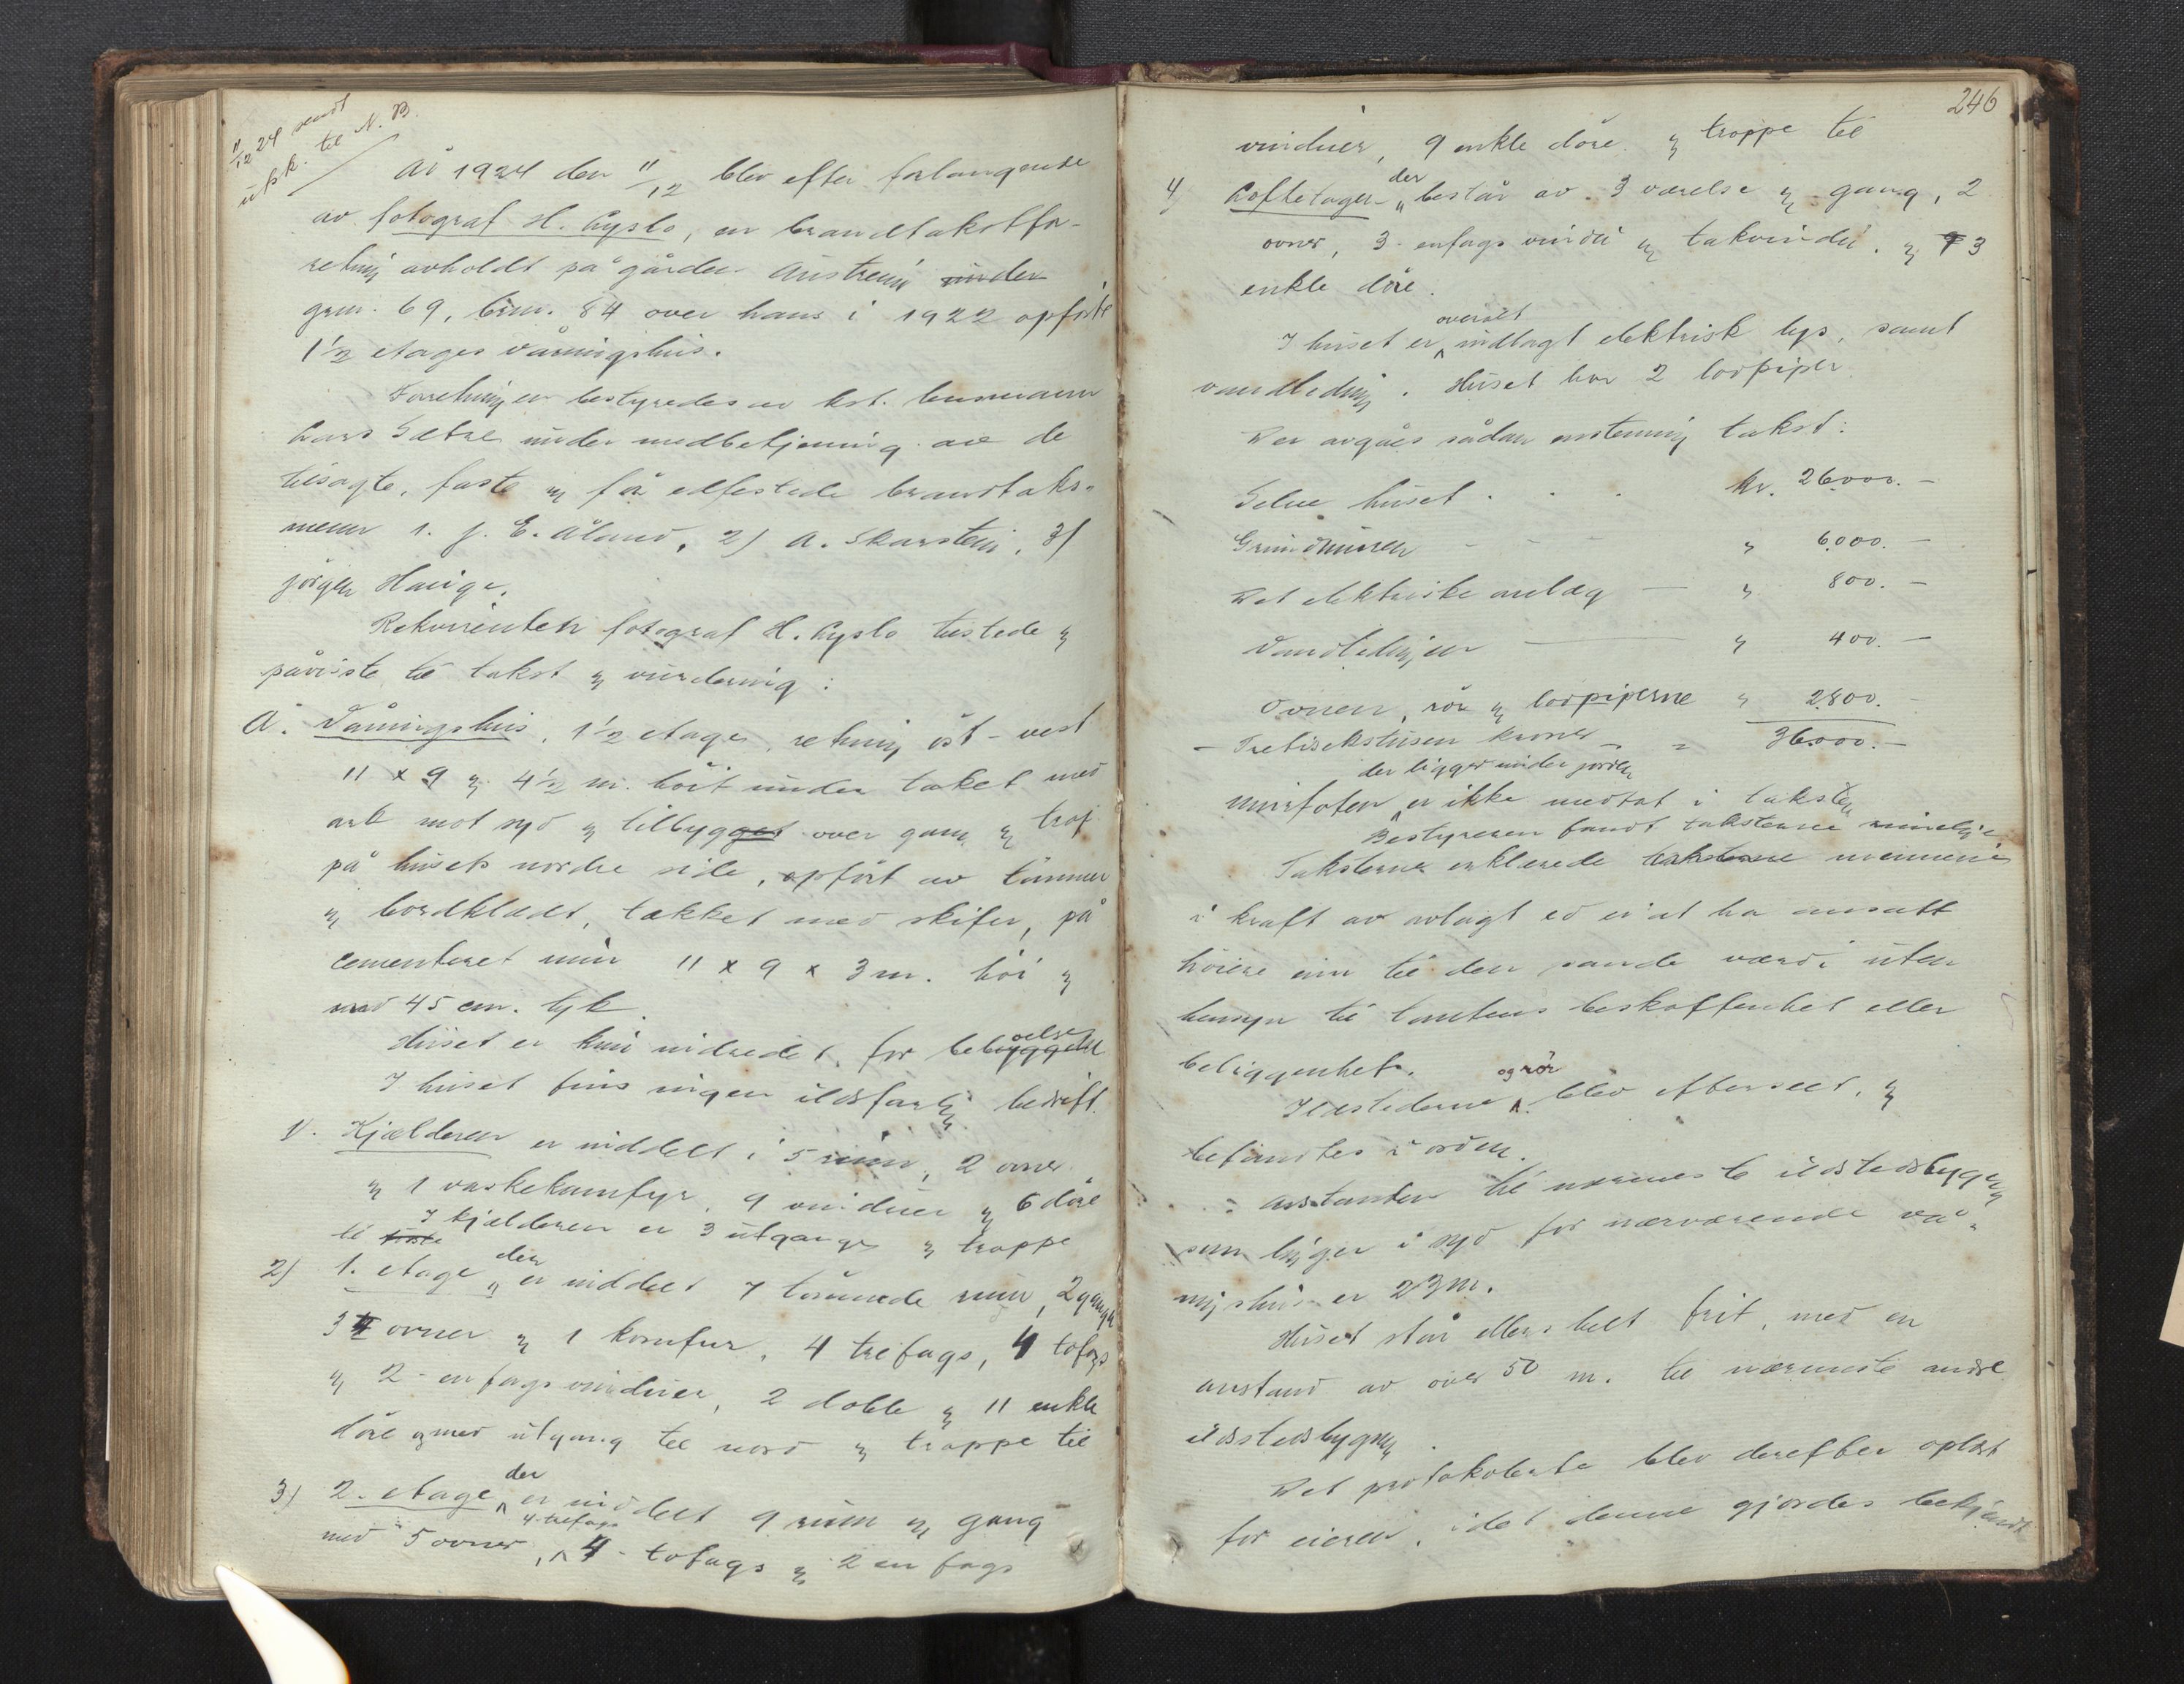 11/12 24 sendt
utsk. til N. B.
År 1924 den 11/12 blev efter forlangende
av fotograf H. Lyslo, en brandtakstfor-
retning avholdt på gården Austreim under
grnr. 69, brnr. 84 over hans i 1922 opførte
1½ etages våningshus.
Forretningen bestyredes av kst. lensmann
Lars Sætre under medbetjening av de
tilsagte, faste og før edfestede brandtaks-
menn 1. J. E. Åland, 2) A. Skarstein, 3)
Jørgen Hauge.
Rekvirenten fotograf H. Lyslo tilstede og
påviste til takst og vurdering:
A. Våningshus, 1½ etages, retning øst-vest
11 x 9 og 4½ m. høit under taket med
ark mot syd og tilbygget over gang og trap
på husets nordre side, opført av tømmer
og bordklædt, tækket med skifer, på
cementeret mur 11 x 9 x 3 m. høi og
med 45 cm. tyk.
Huset er kun indredet for beboelse
I huset fins ingen ildsfarlig bedrift.
1). Kjælderen er inddelt i 5 rum, 2 ovner
og 1 vaskekamfyr, 9 vinduer og 6 døre
I kjælderen er 3 utganger og trappe
til
2) 1. etage der er inddelt 7 rum, 2 ganger
3 ovner og 1 komfur, 4 trefags, 4 tofags
og 2 enfags vinduer, 2 doble og 11 enkle
døre og med utgang til nord og trappe til
3) 2. etage der er inddelt 9 rum og gang
med 5 ovner, 4 trefags 4 tofags og 2 en fags
246
vinduer, 9 enkle døre og trappe til
4) Loftetagen der består av 3 værelse og gang, 2
ovner, 3 enfags vindu og takvindu, og 3
enkle døre.
I huset er overalt indlagt elektrisk lys, samt
vandledning. Huset har 2 lodpiper
Der avgåes sådan enstemmig takst:
Selve huset . . . kr. 26000. -
Grundmuren - - - " 6000. -
Det elektriske anlæg - " 800. -
Vandledningen - " 400. -
Ovnen, rør og lodpiperne " 2800. -
- Trettisekstusen kroner - = 36000. -
Murfoten der ligger under jorden er ikke medtat i taksten
Bestyreren fandt taksterne rimelige
Taksterne erklærede mennene
i kraft av avlagt ed ei at ha ansatt
høiere enn til den sande værdi uten
hensyn til tomtens beskaffenhet eller
beliggenhet.
Ildstederne og rør blev efterseet, og
befandtes i orden.
Avstanden til nærmeste ildstedsbygning
som ligger i syd for nærværende vå-
ningshus er 23 m.
Huset står ellers helt frit, med en
avstand av over 50 m. til nærmeste andre
ildstedsbygning.
Det protokolerte blev derefter oplæst
for eieren, idet denne gjordes bekjendt